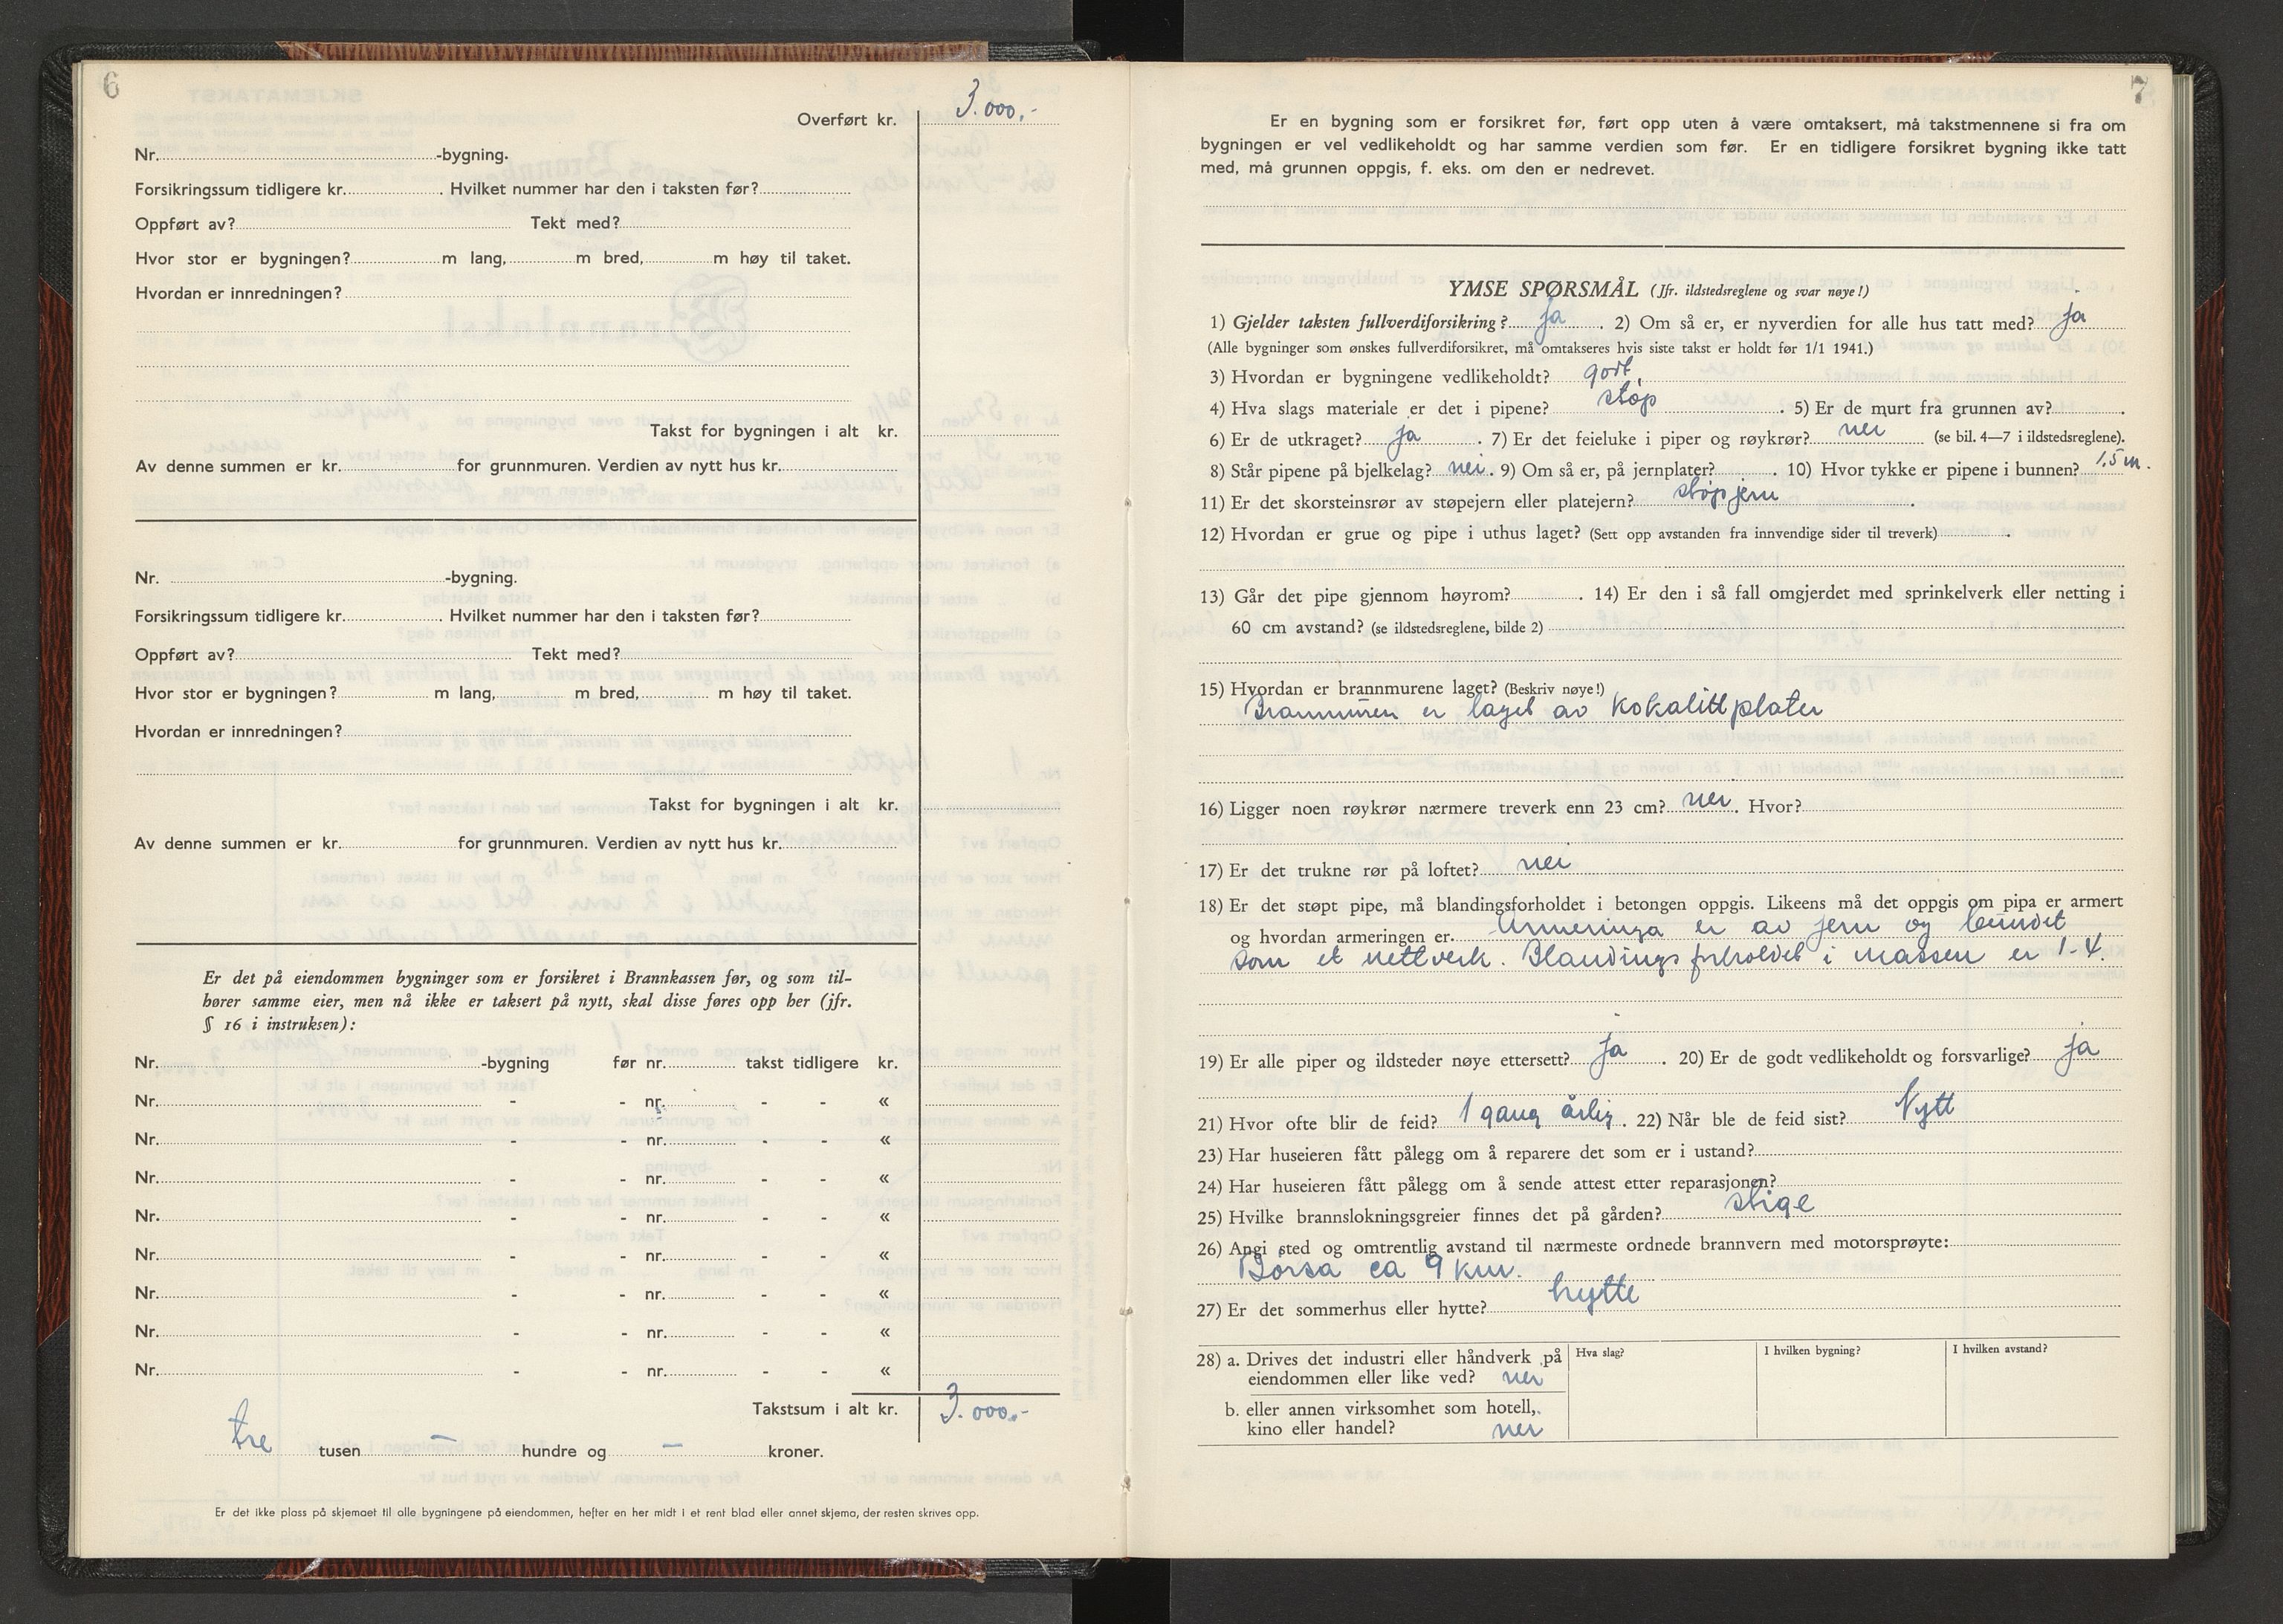 6
Overført kr. 3.000,-
Nr. -bygning.
Forsikringssum tidligere kr. . Hvilket nummer har den i taksten før?
Oppført av? Tekt med?
Hvor stor er bygningen? m lang, m bred, m høy til taket.
Hvordan er innredningen?
Takst for bygningen i alt kr.
Av denne summen er kr. for grunnmuren. Verdien av nytt hus kr.
Nr. -bygning.
Forsikringssum tidligere kr. . Hvilket nummer har den i taksten før?
Oppført av? Tekt med?
Hvor stor er bygningen? m lang, m bred, m høy til taket.
Hvordan er innredningen?
Takst for bygningen i alt kr.
Av denne summen er kr. for grunnmuren. Verdien av nytt hus kr.
Er det på eiendommen bygninger som er forsikret i Brannkassen før, og som til-
hører samme eier, men nå ikke er taksert på nytt, skal disse føres opp her (jfr.
§ 16 i instruksen):
Nr. -bygning før nr. takst tidligere kr.
Nr. - - nr. - - «
Nr. - - nr. - - «
Nr. - - nr. - - «
Nr. - - nr. - - «
Nr. - - nr. - - «
Nr. - - nr. - - «
Nr. - - nr. - - «
Nr. - - nr. - - «
Takstsum i alt kr. 3.000.-
tre tusen — hundre og — kroner.
Er det ikke plass på skjemaet til alle bygningene på eiendommen, hefter en her midt i et rent blad eller annet skjema, der resten skrives opp.
7
Er en bygning som er forsikret før, ført opp uten å være omtaksert, må takstmennene si fra om
bygningen er vel vedlikeholdt og har samme verdien som før. Er en tidligere forsikret bygning ikke tatt
med, må grunnen oppgis, f. eks. om den er nedrevet.
YMSE SPØRSMÅL (Jfr. ildstedsreglene og svar nøye!)
1) Gjelder taksten fullverdiforsikring? ja . 2) Om så er, er nyverdien for alle hus tatt med? ja
(Alle bygninger som ønskes fullverdiforsikret, må omtakseres hvis siste takst er holdt før 1/1 1941.)
3) Hvordan er bygningene vedlikeholdt? godt,
4) Hva slags materiale er det i pipene? støp . 5) Er de murt fra grunnen av? .
6) Er de utkraget? ja . 7) Er det feieluke i piper og røykrør? nei (se bil. 4—7 i ildstedsreglene).
8) Står pipene på bjelkelag? nei . 9) Om så er, på jernplater? . 10) Hvor tykke er pipene i bunnen? 1,5 m.
11) Er det skorsteinsrør av støpejern eller platejern? støpjern .
12) Hvordan er grue og pipe i uthus laget? (Sett opp avstanden fra innvendige sider til treverk) .
13) Går det pipe gjennom høyrom? . 14) Er den i så fall omgjerdet med sprinkelverk eller netting i
60 cm avstand? (se ildstedsreglene, bilde 2)
15) Hvordan er brannmurene laget? (Beskriv nøye!)
Brannmuren er laget av kokalitt plater
16) Ligger noen røykrør nærmere treverk enn 23 cm? nei . Hvor?
17) Er det trukne rør på loftet? nei
18) Er det støpt pipe, må blandingsforholdet i betongen oppgis. Likeens må det oppgis om pipa er armert
og hvordan armeringen er. Armeringa er av jern og bundet
som et nettverk. Blandingsforholdet i massen er 1-4.
19) Er alle piper og ildsteder nøye ettersett? ja . 20) Er de godt vedlikeholdt og forsvarlige? ja
21) Hvor ofte blir de feid? 1 gang årlig . 22) Når ble de feid sist? Nytt
23) Har huseieren fått pålegg om å reparere det som er i ustand?
24) Har huseieren fått pålegg om å sende attest etter reparasjonen?
25) Hvilke brannslokningsgreier finnes det på gården? stige
26) Angi sted og omtrentlig avstand til nærmeste ordnede brannvern med motorsprøyte:
Börsa ca 9 km.
27) Er det sommerhus eller hytte? hytte
28) a. Drives det industri eller håndverk på Hva slag? I hvilken bygning? I hvilken avstand?
eiendommen eller like ved? nei
b. eller annen virksomhet som hotell,
kino eller handel? nei